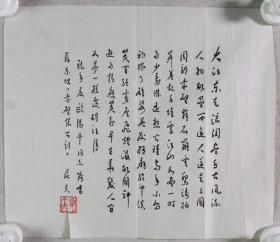 大江东去浪淘尽千古风流
人物故垒西边人道是三国
周郎赤壁乱石崩云惊涛拍
岸卷起千堆雪江山如画一时
多少豪杰遥想公瑾当年小乔
初嫁了雄姿英发羽扇纶巾谈
笑间强虏灰飞烟灭故国神
游多情应笑我早生华发人间
如梦一樽还酹江月
龙年夏欧阳平同志嘱书
苏东坡赤壁怀古词